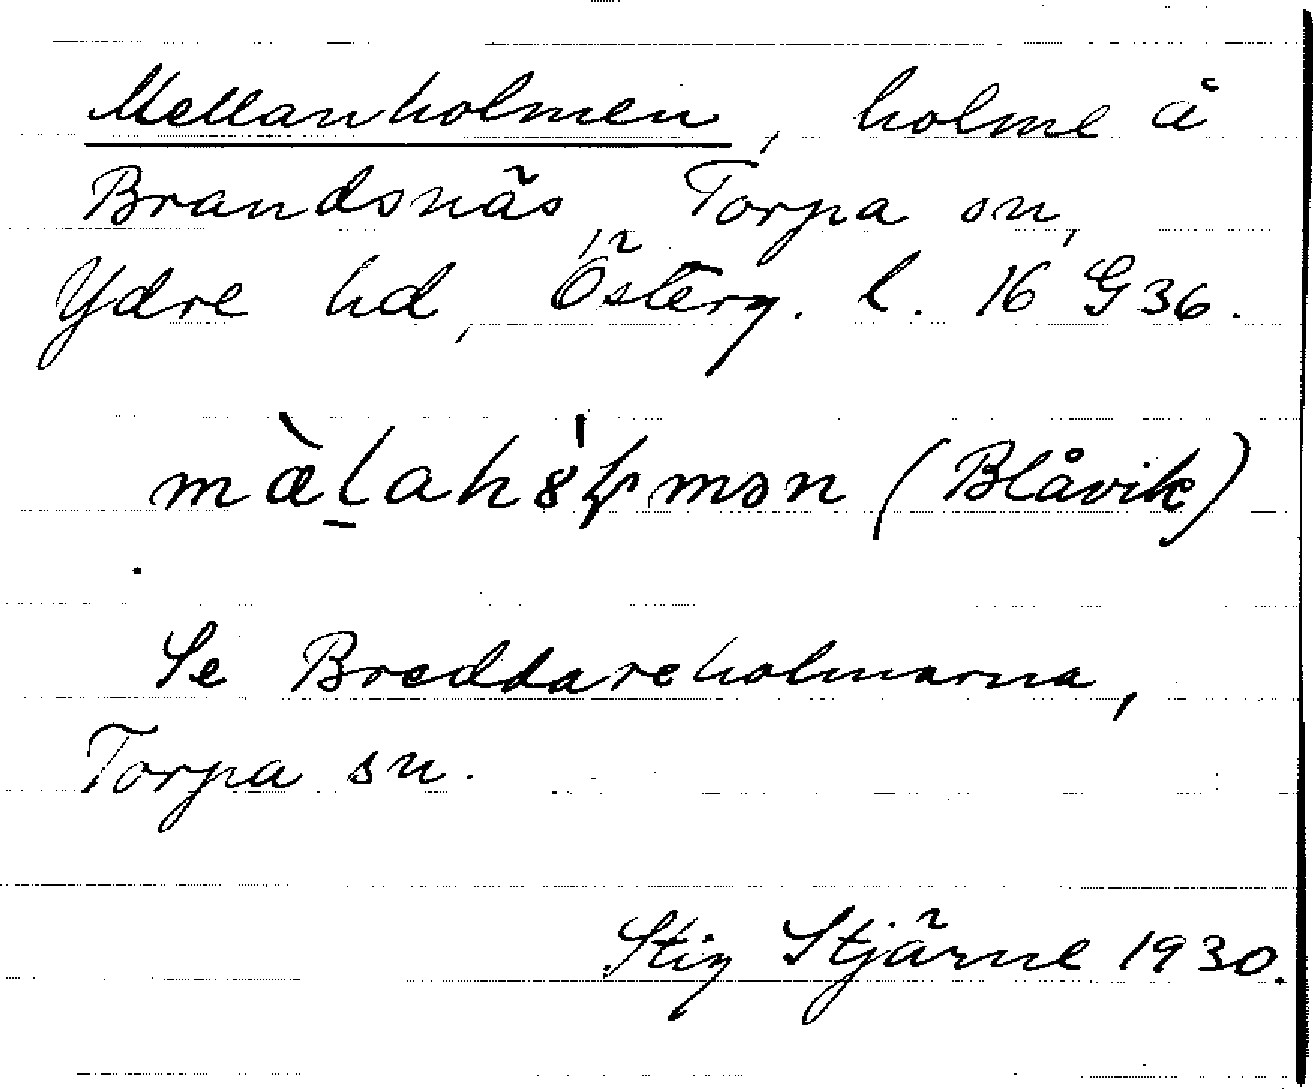 Mellanholmen, holme å
Brandsnäs, Torpa sn,
Ydre hd, Österg. l. 16 G 36.
(Blåvik)
Se Breddareholmarna,
Torpa sn.
Stig Stjärne 1930.